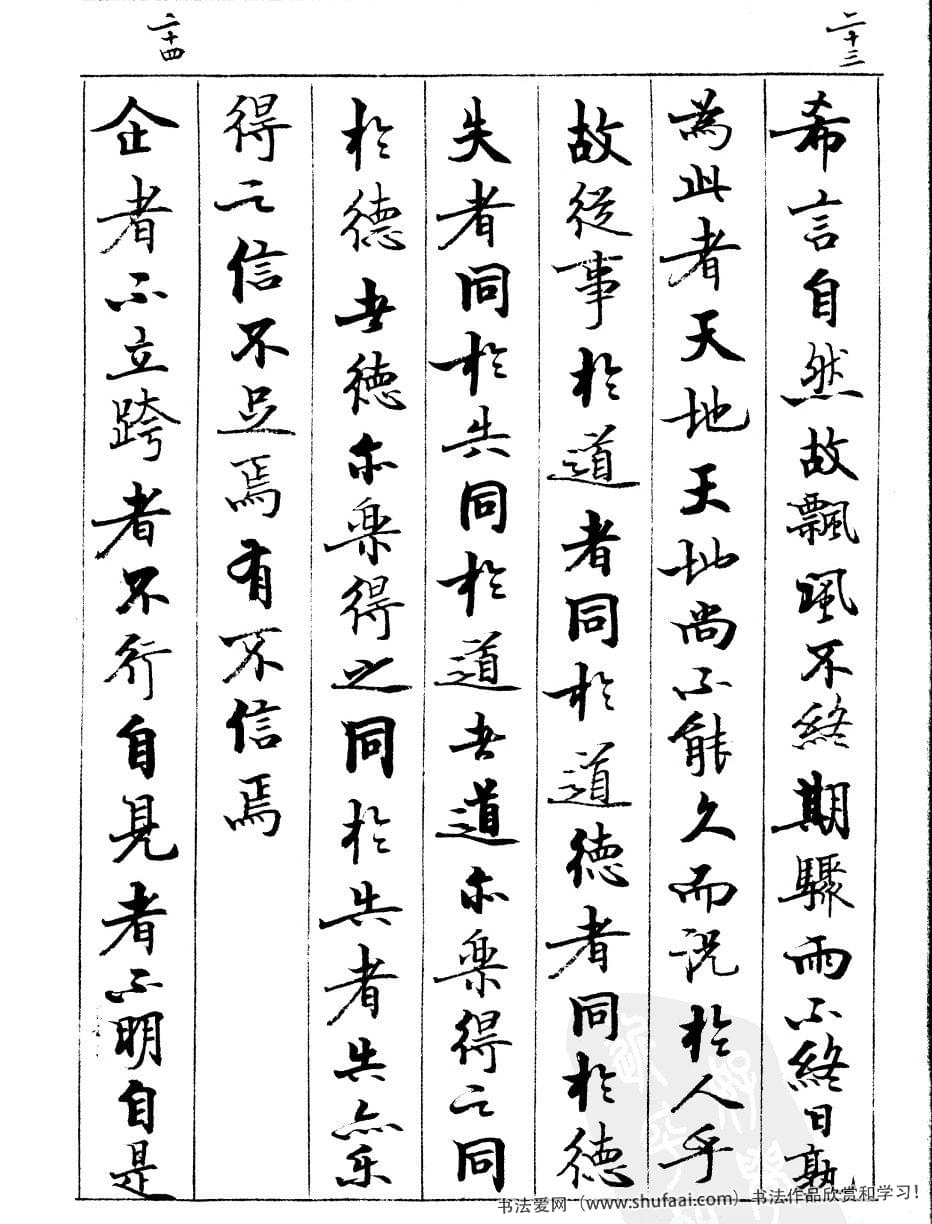 二十三
希言自然故飄風不終期驟雨不終日孰
為此者天地天地尚不能久而況於人乎
故從事於道者同於道德者同於德
失者同於失同於道者道亦樂得之同
於德者德亦樂得之同於失者失亦樂
得之信不足焉有不信焉
二十四
企者不立跨者不行自見者不明自是
书法爱网（www.shufaai.com）书法作品欣赏和学习！